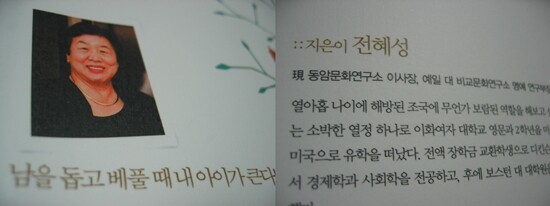 남을 돕고 베풀 때 내 아이가 큰다
::지은이 전혜성
現 동암문화연구소 이사장, 예일 대 비교문화연구소 명예 연구부장
열아홉 나이에 해방된 조국에 무언가 보람된 역할을 해보고
는 소박한 열정 하나로 이화여자 대학교 영문과 2학년을
미국으로 유학을 떠났다. 전액 장학금 교환학생으로 디킨슨
서 경제학과 사회학을 전공하고, 후에 보스턴 대 대학원